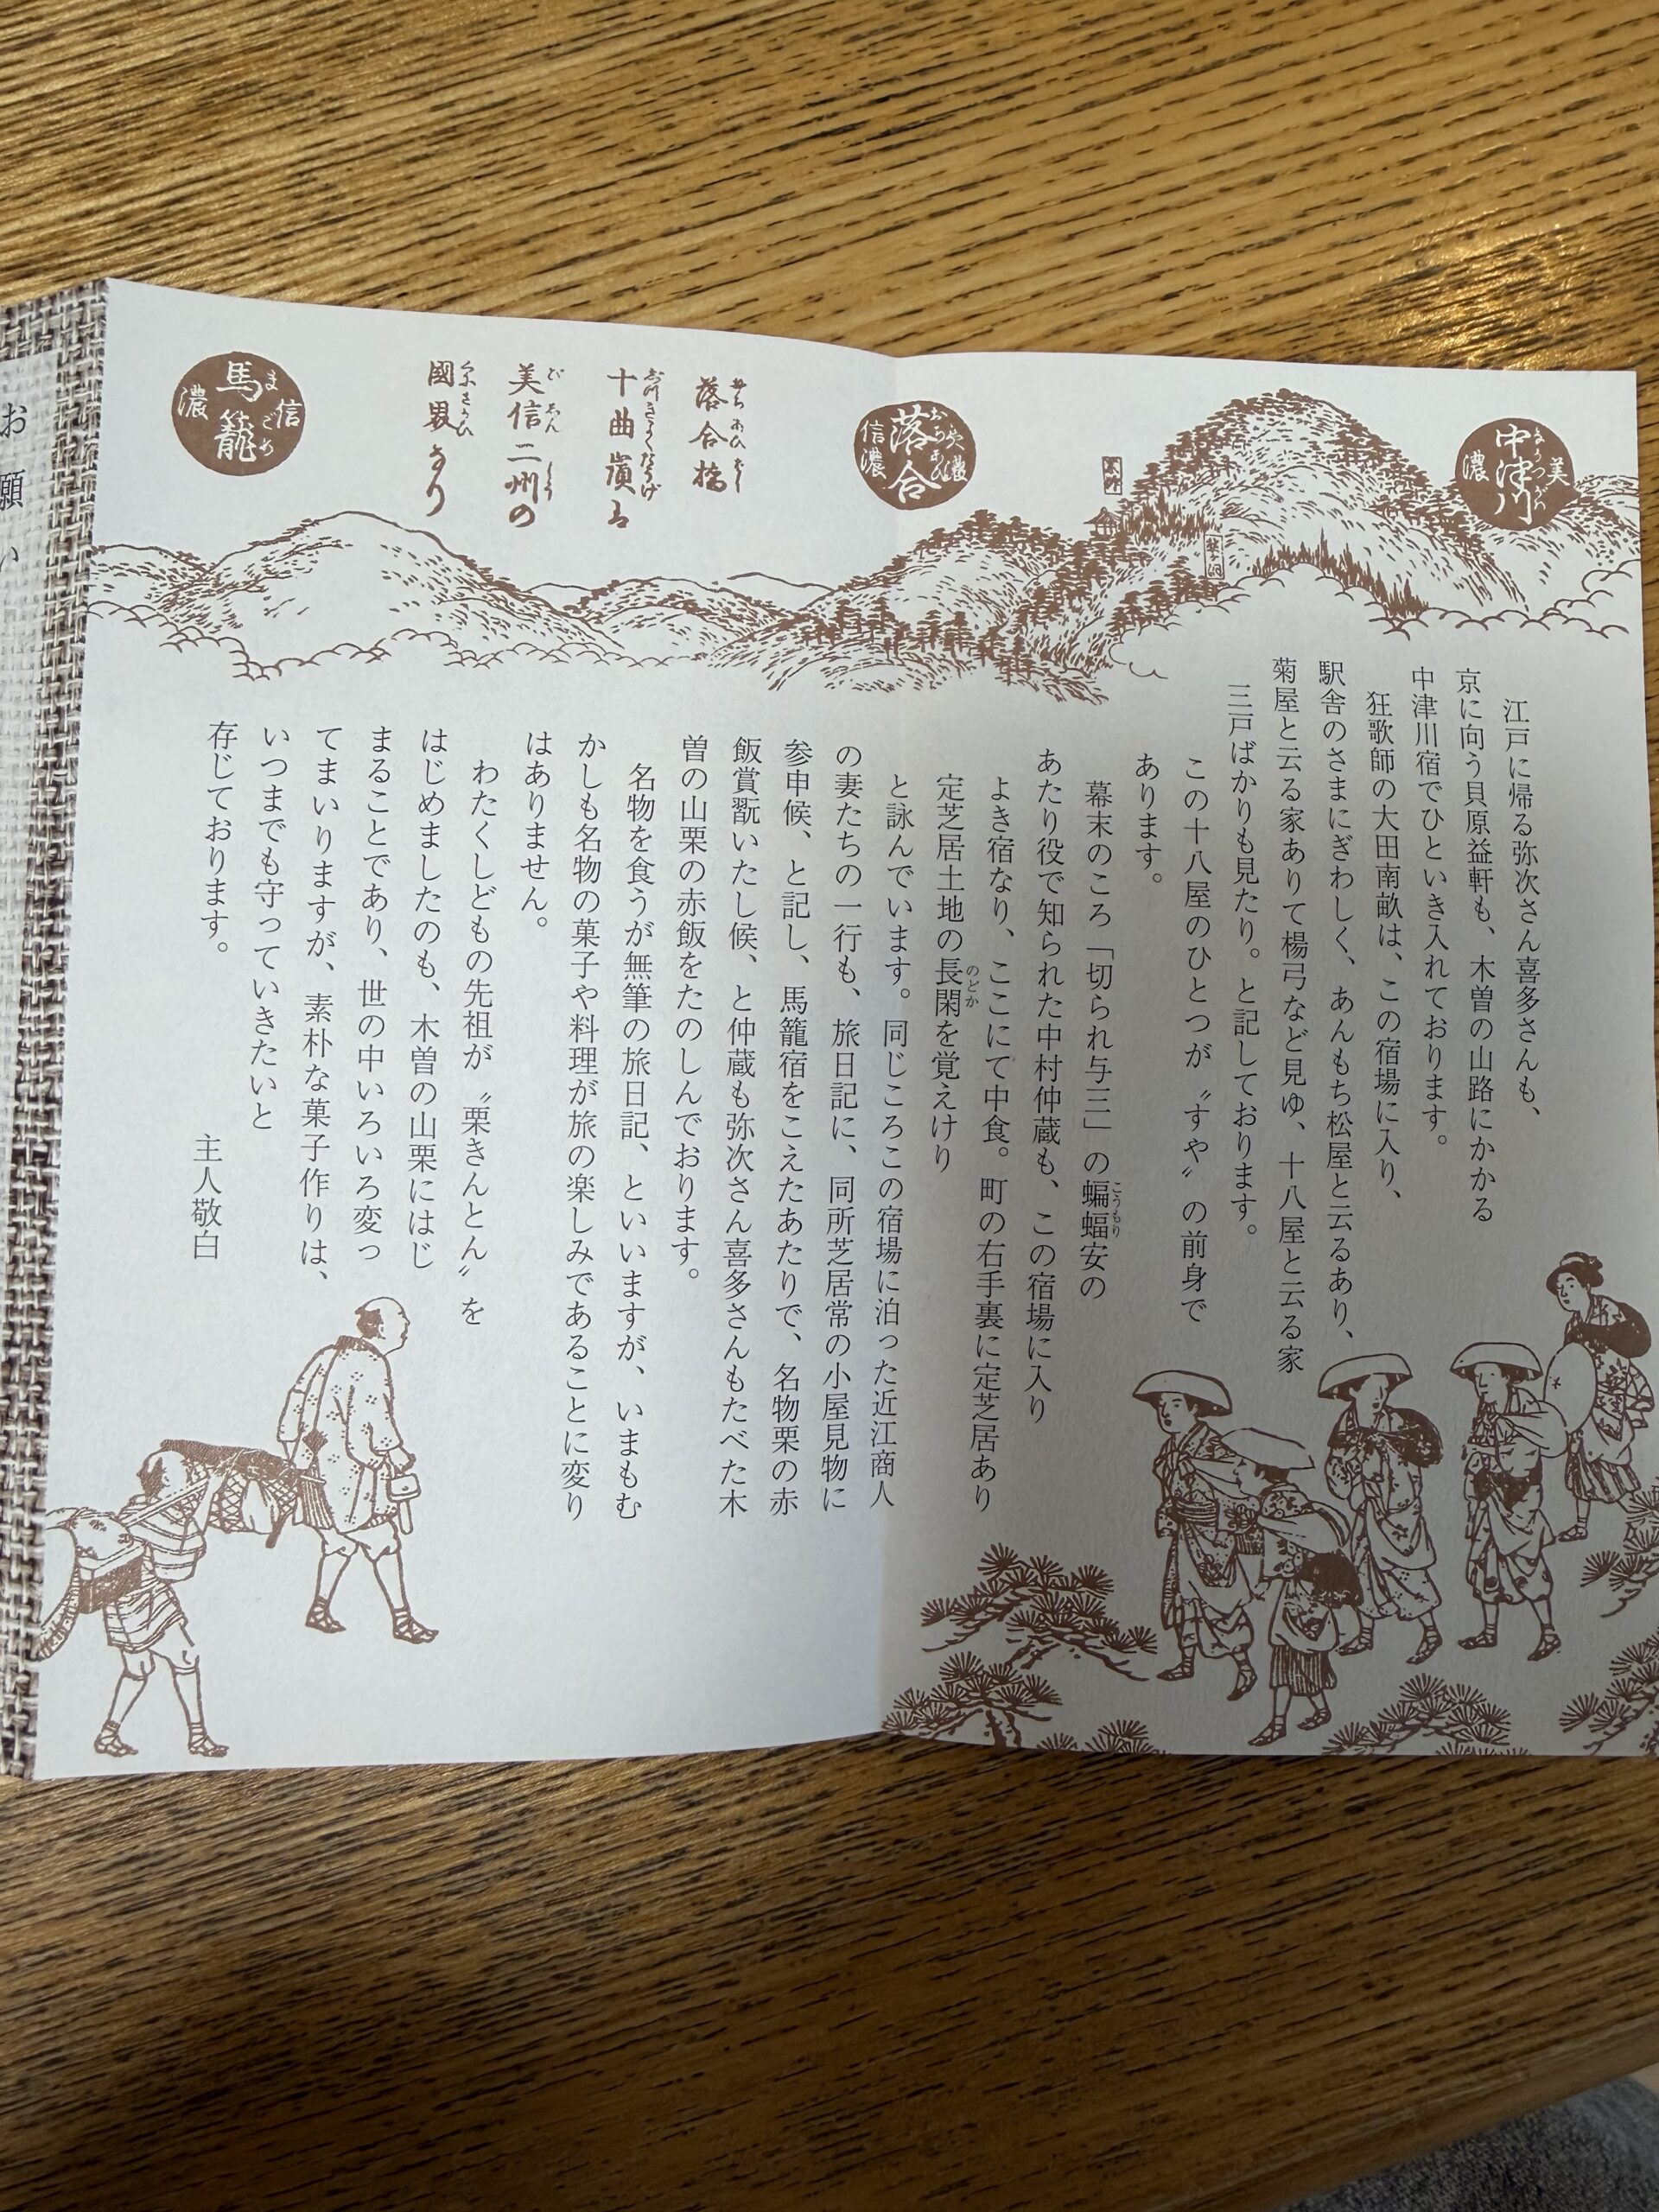 美濃
中津川
なかつがわ
落合
信濃
落合橋
十曲嶺
美信二州の
國界
信濃
馬籠
まごめ
江戸に帰る弥次さん喜多さんも、
京に向う貝原益軒も、木曽の山路にかかる
中津川宿でひといき入れております。
狂歌師の大田南畝は、この宿場に入り、
駅舎のさまにぎわしく、あんもち松屋と云るあり、
菊屋と云る家ありて楊弓など見ゆ、十八屋と云る家
三戸ばかりも見たり。と記しております。
この十八屋のひとつが〝すや〟の前身で
あります。
幕末のころ「切られ与三」の蝙蝠安の
こうもり
あたり役で知られた中村仲蔵も、この宿場に入り
よき宿なり、ここにて中食。町の右手裏に定芝居あり
定芝居土地の長閑を覚えけり
のどか
と詠んでいます。同じころこの宿場に泊った近江商人
の妻たちの一行も、旅日記に、同所芝居常の小屋見物に
参申候、と記し、馬籠宿をこえたあたりで、名物栗の赤
飯賞翫いたし候、と仲蔵も弥次さん喜多さんもたべた木
曽の山栗の赤飯をたのしんでおります。
名物を食うが無筆の旅日記、といいますが、いまもむ
かしも名物の菓子や料理が旅の楽しみであることに変り
はありません。
わたくしどもの先祖が〝栗きんとん〟を
はじめましたのも、木曽の山栗にはじ
まることであり、世の中いろいろ変っ
てまいりますが、素朴な菓子作りは、
いつまでも守っていきたいと
存じております。
主人敬白
お願い